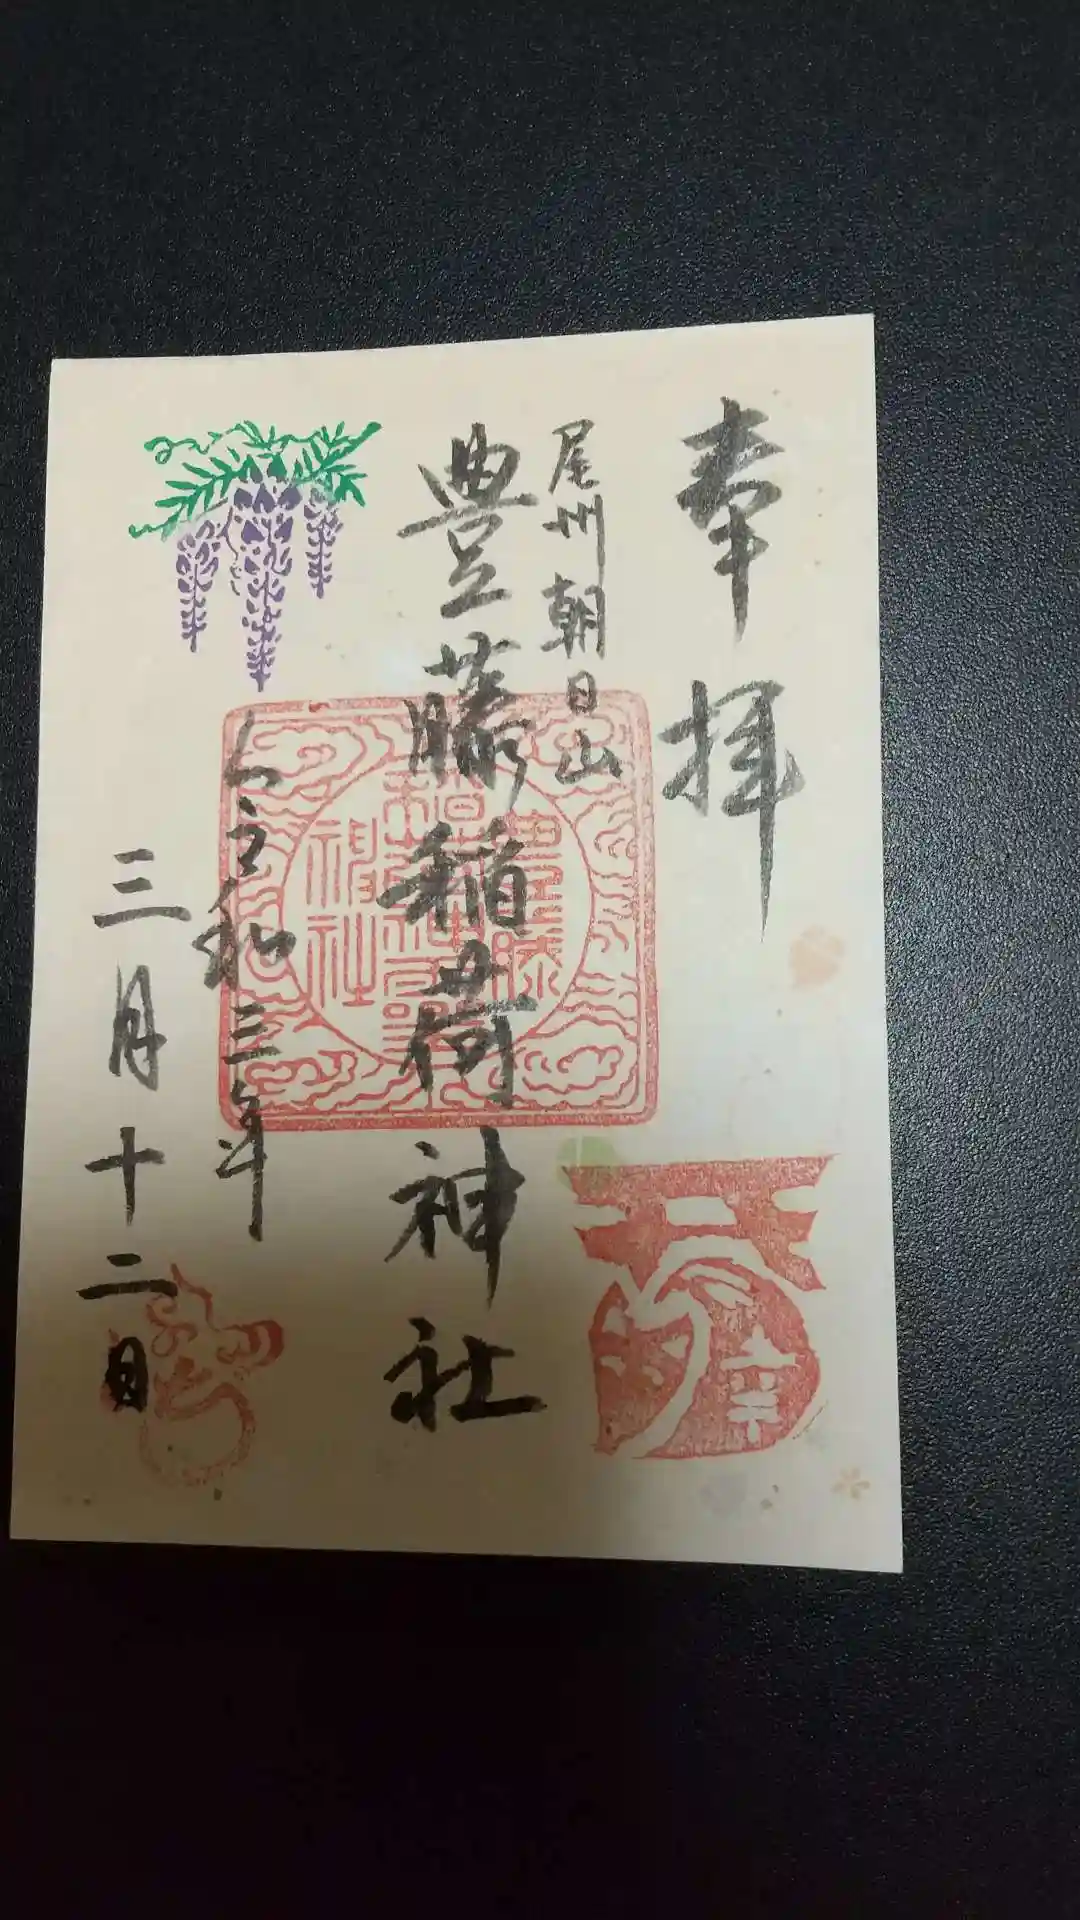 奉拝
尾州朝日山
豊藤稲荷神社
令和三年
三月十二日
豊藤
稲荷
神社